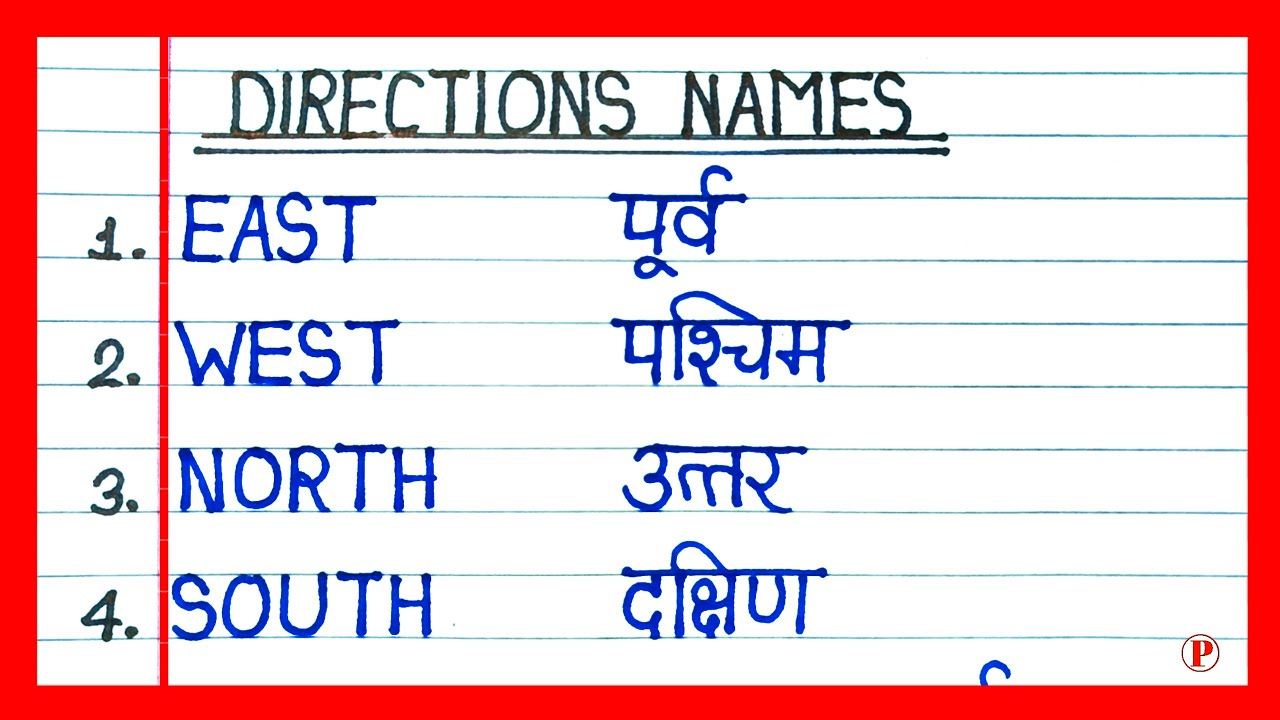 DIRECTIONS NAMES
1. EAST पूर्व
2. WEST पश्चिम
3. NORTH उत्तर
4. SOUTH दक्षिण
P